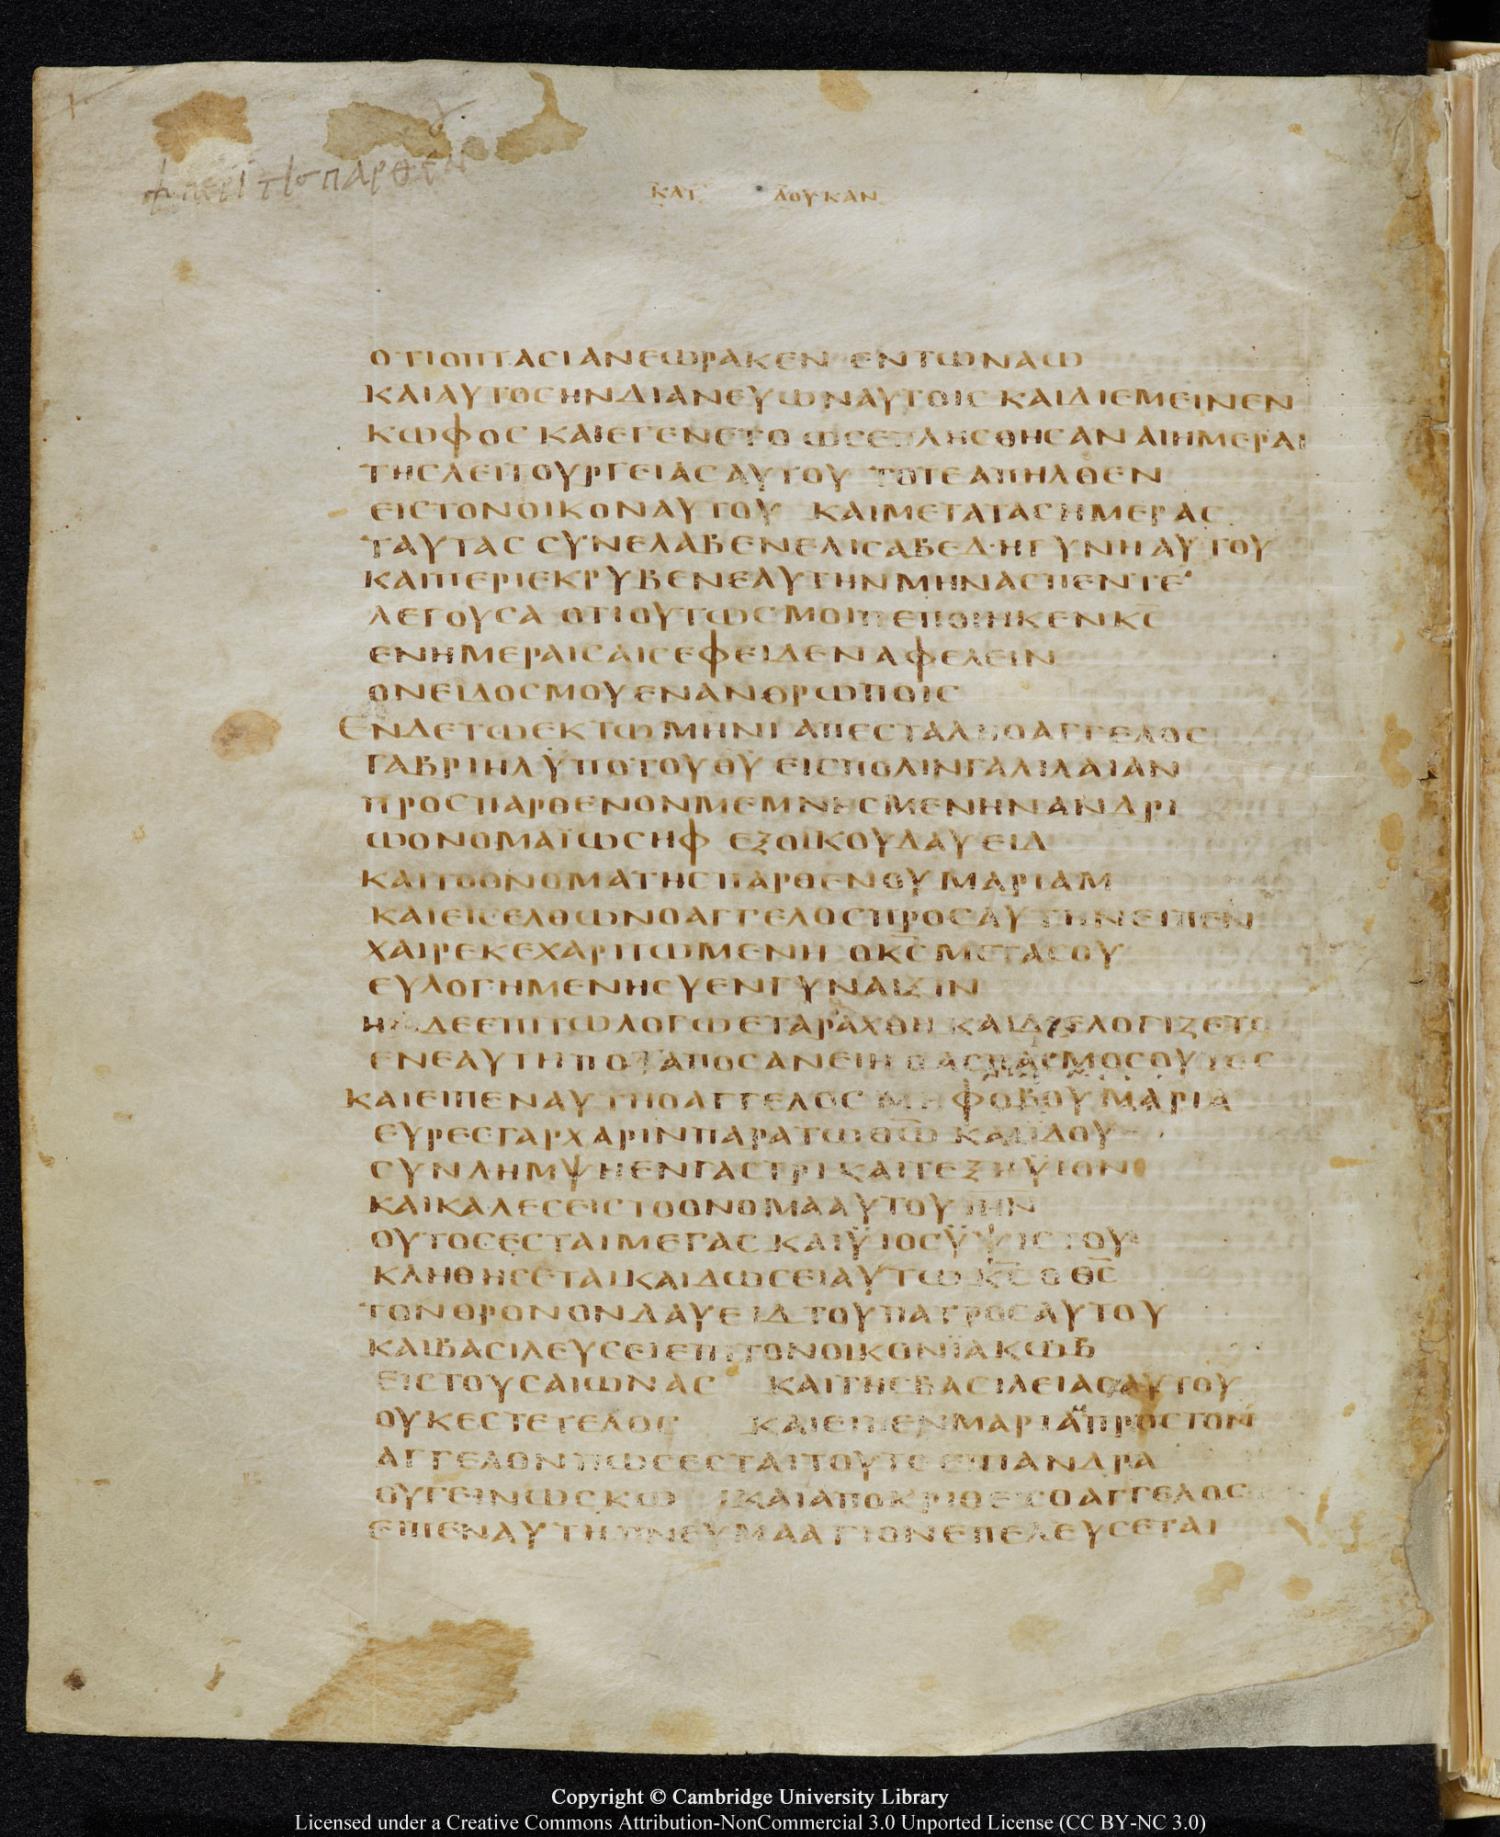 ΚΑΤ ΛΟΥΚΑΝ
ΟΤΙΟΠΤΑCΙΑΝΕΩΡΑΚΕΝ ΕΝΤΩΝΑΩ
ΚΑΙΑΥΤΟCΗΝΔΙΑΝΕΥΩΝΑΥΤΟΙC ΚΑΙΔΙΕΜΕΙΝΕΝ
ΚΩΦΟC ΚΑΙΕΓΕΝΕΤΟ ΩCΕΠΛΗCΘΗCΑΝ ΑΙΗΜΕΡΑΙ
ΤΗCΛΕΙΤΟΥΡΓΕΙΑCΑΥΤΟΥ ΤΟΤΕΑΠΗΛΘΕΝ
ΕΙCΤΟΝΟΙΚΟΝΑΥΤΟΥ ΚΑΙΜΕΤΑΤΑCΗΜΕΡΑC
ΤΑΥΤΑC CΥΝΕΛΑΒΕΝΕΛΙCΑΒΕΔ·ΗΓΥΝΗΑΥΤΟΥ
ΚΑΙΠΕΡΙΕΚΡΥΒΕΝΕΑΥΤΗΝΜΗΝΑCΠΕΝΤΕ
ΛΕΓΟΥCΑ ΟΤΙΟΥΤΩCΜΟΙΠΕΠΟΙΗΚΕΝΚ̅C̅
ΕΝΗΜΕΡΑΙCΑΙCΕΦΕΙΔΕΝΑΦΕΛΕΙΝ
ΟΝΕΙΔΟCΜΟΥΕΝΑΝΘΡΩΠΟΙC
ΕΝΔΕΤΩΕΚΤΩΜΗΝΙ ΑΠΕCΤΑΛΗΟΑΓΓΕΛΟC
ΓΑΒΡΙΗΛΫΠΟΤΟΥΘ̅Υ̅ ΕΙCΠΟΛΙΝΓΑΛΙΛΑΙΑΝ
ΠΡΟCΠΑΡΘΕΝΟΝΜΕΜΝΗCΜΕΝΗΝΑΝΔΡΙ
ΩΟΝΟΜΑΪΩCΗΦ ΕΞΟΙΚΟΥΔΑΥΕΙΔ
ΚΑΙΤΟΟΝΟΜΑΤΗCΠΑΡΘΕΝΟΥ ΜΑΡΙΑΜ
ΚΑΙΕΙCΕΛΘΩΝΟΑΓΓΕΛΟCΠΡΟCΑΥΤΗΝΕΙΠΕΝ
ΧΑΙΡΕΚΕΧΑΡΙΤΩΜΕΝΗ ΟΚ̅C̅ΜΕΤΑCΟΥ
ΕΥΛΟΓΗΜΕΝΗCΥΕΝΓΥΝΑΙΞΙΝ
Η ΔΕΕΠΙΤΩΛΟΓΩΕΤΑΡΑΧΘΗ ΚΑΙΔΙΕΛΟΓΙΖΕΤΟ
ΕΝΕΑΥΤΗΠΟΤΑΠΟCΑΝΕΙΗΟΑCΠΑCΜΟCΟΥΤΟC
ΚΑΙΕΙΠΕΝΑΥΤΗΟΑΓΓΕΛΟC ΜΗΦΟΒΟΥΜΑΡΙΑ
ΕΥΡΕCΓΑΡΧΑΡΙΝΠΑΡΑΤΩΘ̅Ω̅ ΚΑΙΙΔΟΥ
CΥΝΛΗΜΨΗΕΝΓΑCΤΡΙ ΚΑΙΤΕΞΗΫΙΟΝ
ΚΑΙΚΑΛΕCΕΙCΤΟΟΝΟΜΑΑΥΤΟΥΙ̅Η̅Ν̅
ΟΥΤΟCΕCΤΑΙΜΕΓΑC ΚΑΙΫΙΟCΫΨΙCΤΟΥ
ΚΛΗΘΗCΕΤΑΙΚΑΙΔΩCΕΙΑΥΤΩ Κ̅C̅ΟΘ̅C̅
ΤΟΝΘΡΟΝΟΝΔΑΥΕΙΔ ΤΟΥΠΑΤΡΟCΑΥΤΟΥ
ΚΑΙΒΑCΙΛΕΥCΕΙΕΠΙΤΟΝΟΙΚΟΝΪΑΚΩΒ
ΕΙCΤΟΥCΑΙΩΝΑC ΚΑΙΤΗCΒΑCΙΛΕΙΑCΑΥΤΟΥ
ΟΥΚΕCΤΕΤΕΛΟC ΚΑΙΕΙΠΕΝΜΑΡΙΑΠΡΟCΤΟΝ
ΑΓΓΕΛΟΝΠΩCΕCΤΑΙΤΟΥΤΟ ΕΠΙΑΝΔΡΑ
ΟΥΓΕΙΝΩCΚΩ ΚΑΙΑΠΟΚΡΙΘΕΙCΟΑΓΓΕΛΟC
ΕΙΠΕΝΑΥΤΗΠΝΕΥΜΑΑΓΙΟΝΕΠΕΛΕΥCΕΤΑΙ
Copyright © Cambridge University Library
Licensed under a Creative Commons Attribution-NonCommercial 3.0 Unported License (CC BY-NC 3.0)